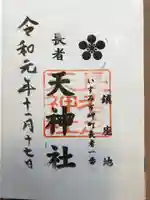 鎮座地
いすみ市岬町長者一番
長者
天神社
令和元年十一月十七日